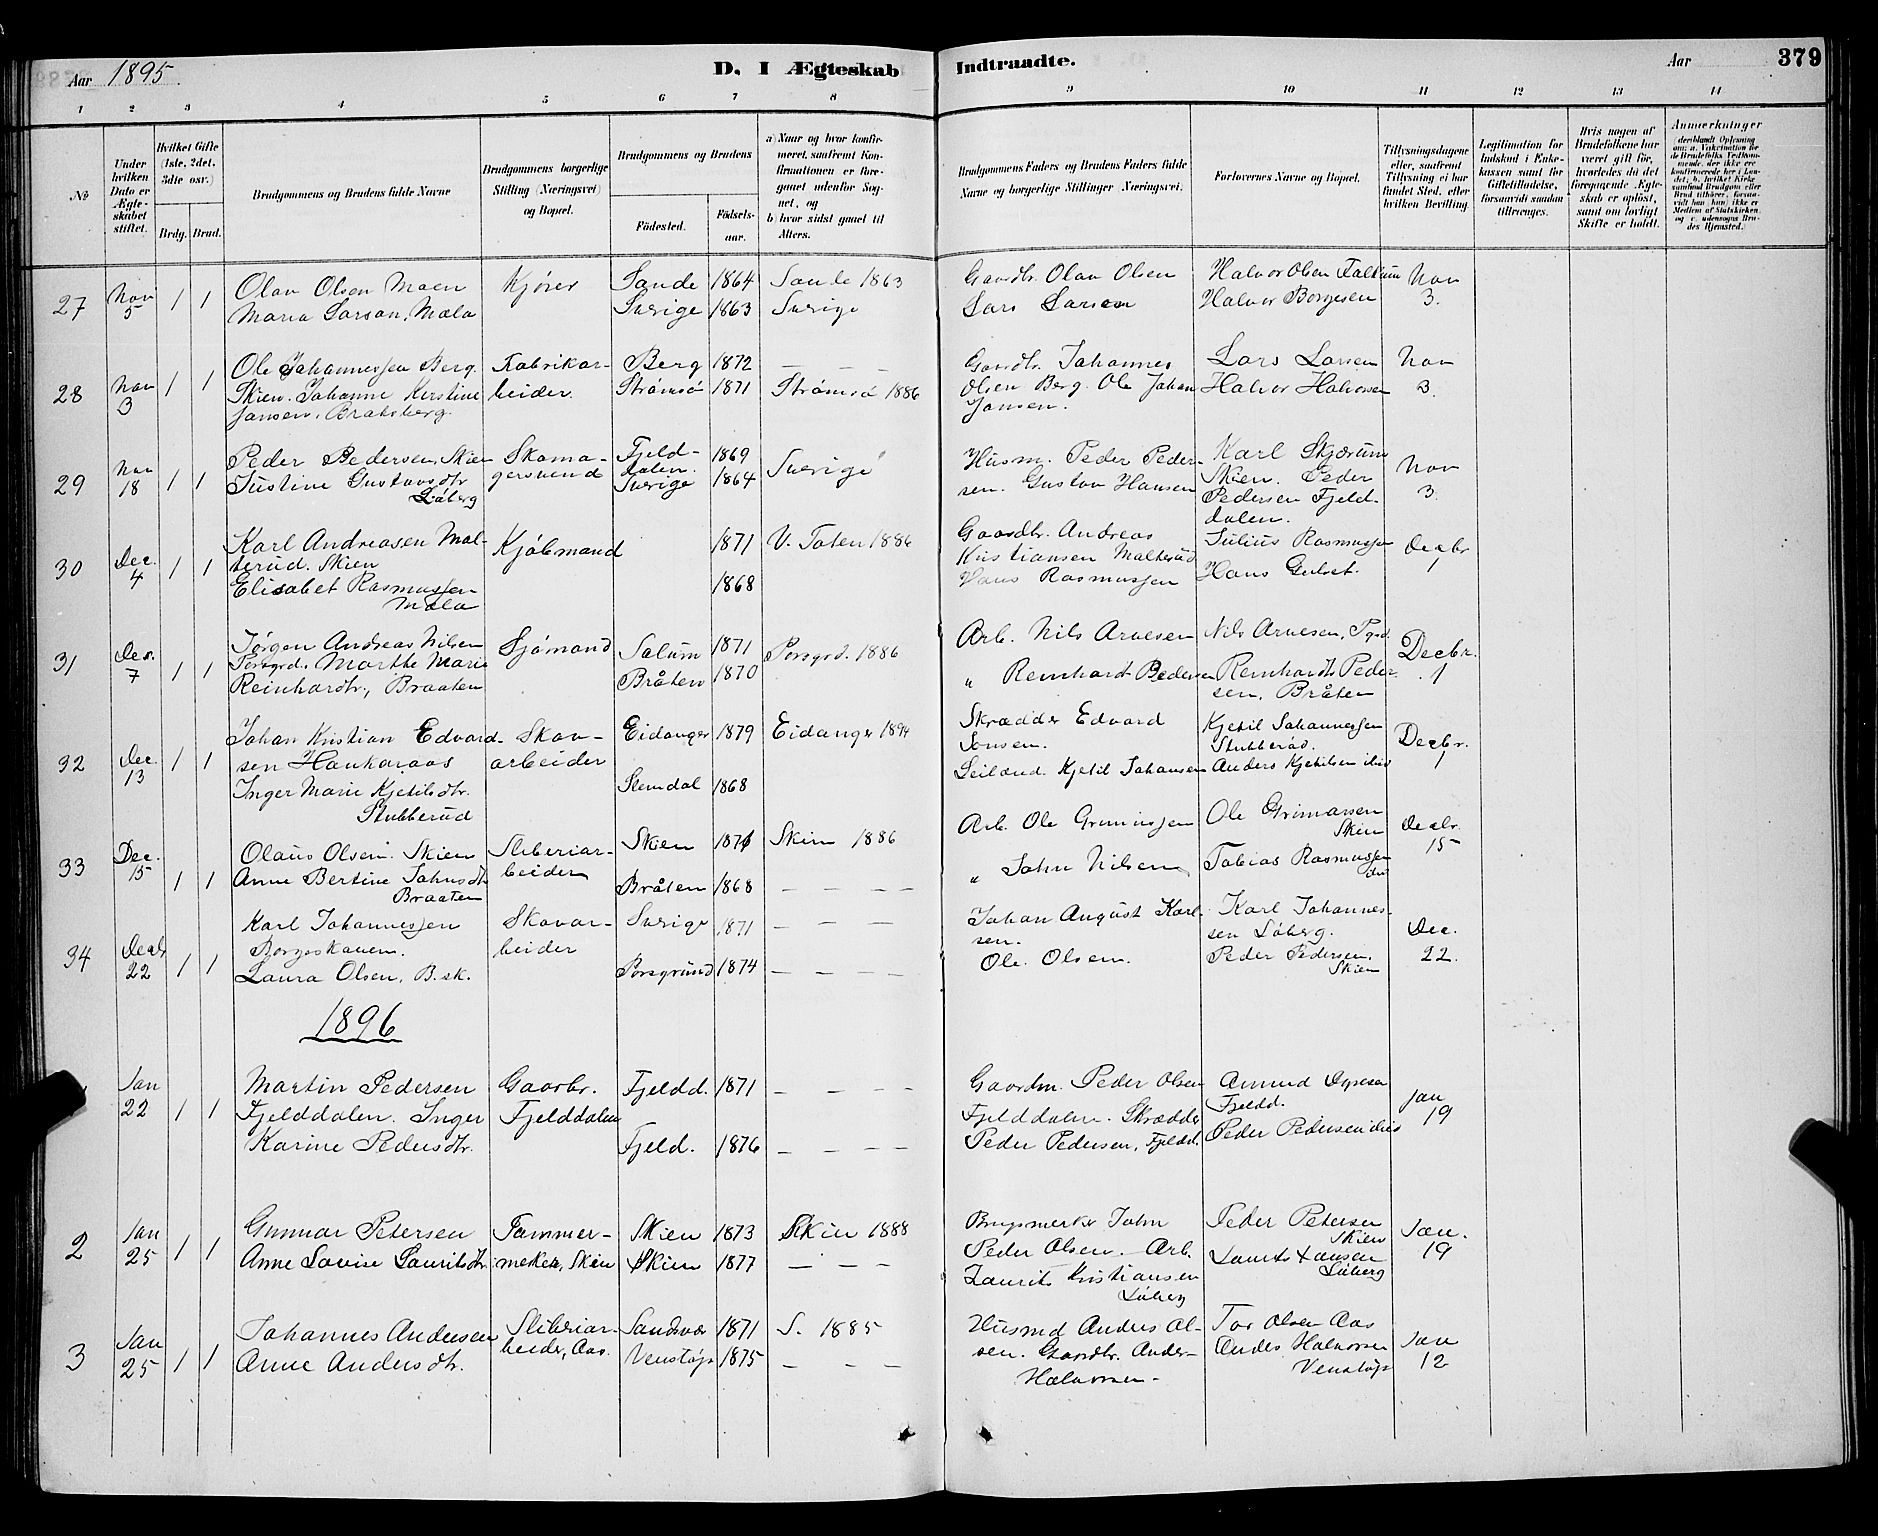 Aar 1895. D. I Ægteskab Indtraadte. Aar 379
1 2 3 4 5 6 7 8 9 10 11 12 13 14
No
Under hvilken Dato er Ægteskabet stiftet.
Hvilket Gifte (1ste, 2det, 3die osv.)
Brdg. Brud.
Brudgommens og Brudens fulde Navne
Brudgommens borgerlige Stilling (Næringsvei) og Bopæl.
Brudgommens og Brudens
Födested. Födselsaar.
a) Naar og hvor konfirmeret, saafremt Konfirmationen er foregaaet udenfor Sognet, og
b) hvor sidst gaaet til Alters.
Brudgommens Faders og Brudens Faders fulde Navne og borgerlige Stillinger (Næringsvei).
Forlovernes Navne og Bopæl.
Tillysningsdagene eller, saafremt Tillysning ei har fundet Sted, efter hvilken Bevilling.
Legitimation for Indskud i Enkekassen samt for Giftetilladelse, forsaavidt saadan tiltrænges.
Hvis nogen af Brudefolkene har været gift för, hvorledes da det foregaaende Ægteskab er oplöst, samt om lovligt Skifte er holdt.
Anmerkninger
27 Nov 5 1 1
Olav Olsen Moen
Maria Larsan, Mæla
Kjører
Sande 1864 Sande 1863
Sverige 1863 Sverige
Gaardbr. Olav Olsen
Lars Larsen
Halvor Olsen Falkum
Halvor Borgesen
Nov 3.
28 Nov 3 1 1
Ole Johannessen Berg.
Skien. Johanne Kirstine
Jansen, Bratsberg.
Fabrikar-
beider.
Berg 1872 — — —
Strømsø 1871 Strømsø 1886
Gaardbr. Johannes
Olsen Berg. Ole Johan
Jansen.
Lars Larsen
Halvor Halvorsen
Nov 3.
29 Nov 18 1 1
Peder Pedersen, Skien
Justine Gustavsdtr
Løberg
Skoma-
gersvend
Fjeld-
dalen. 1869
Sverige 1864 Sverige
Husm. Peder Peder-
sen. Gustav Hansen
Karl Skjærum
Skien. Peder
Pedersen Fjeld-
dalen.
Nov 3.
30 Dec. 4 1 1
Karl Andreasen Mal-
terud. Skien
Elisabet Rasmussen
Mæla
Kjøbmand
1871 V. Toten 1886
1868
Gaardbr. Andreas
Kristiansen Malterud
Hans Rasmussen
Julius Rasmussen
Hans Gulset.
Decbr 1
31 Dec. 7 1 1
Jørgen Andreas Nilsen
Porsgrd. Marthe Marie
Reinhardtr, Braaten
Sjømand
Solum 1871 Porsgrd. 1886
Bråten 1870
Arb. Nils Arvesen
„ Reinhardt Pedersen
Nils Arvesen, Pgrd.
Reinhardt Peder-
sen, Bråten
Decbr. 1
32 Dec. 13 1 1
Johan Kristian Edvard-
sen Haukaraas
Inger Marie Kjetilsdtr.
Stubberud
Skov-
arbeider
Eidanger 1879 Eidanger 1894
Slemdal 1868
Skrædder Edvard
Jonsen.
Leilænd. Kjetil Johansen
Kjetil Johannessen
Stubberød.
Anders Kjetilsen ibid
Decbr. 1
33 Dec. 15 1 1
Olaus Olsen. Skien
Anne Bertine Johnsdtr
Braaten
Sliberiar-
beider
Skien 1871 Skien 1886
Bråten 1868 — — — —
Arb. Ole Grimussen
„ John Nilsen
Ole Grimarsen
Skien
Tobias Rasmussen
ibd
Decbr. 15
34 Decbr 22 1 1
Karl Johannessen
Borgeskauen.
Laura Olsen, B.sk.
Skovar-
beider
Sverige 1871 — — — —
Porsgrund 1874 — — — —
Johan August Karl-
sen.
Ole Olsen.
Karl Johannes-
sen Løberg.
Peder Pedersen,
Skien
Dec. 22.
1896
Jan 22 1 1
Martin Pedersen
Fjelddalen. Inger
Karine Pedersdtr.
Gaardbr.
Fjelddalen
Fjeldd. 1871 — — — —
Fjeld. 1876 — — — —
Gaardm. Peder Olsen
Fjelddalen. Skrædder
Peder Pedersen, Fjeldd.
Amund
Fjeldd.
Peder Pedersen ibid
Jan 19
2 Jan 25 1 1
Gunnar Petersen
Anne Lovise Lauritsdtr.
Tømmer-
meker, Skien
Skien 1873 Skien 1888
Skien 1877 — — —
John
Peder Olsen. Arb.
Laurits Kristiansen
Løberg
Peder Petersen
Skien
Laurits Hansen
Løberg
Jan. 19
3 Jan 25 1 1
Johannes Andersen
Anne Andersdtr.
Sliberiar-
beider, Aas.
Sandsvær 1871 S. 1885
Venstøp 1875 — — — —
Husmd Anders Ol-
sen. Gaardbr. Anders
Halvorsen.
Tor Olsen Aas
Anders Halvorsen
Venstøp
Jan 12